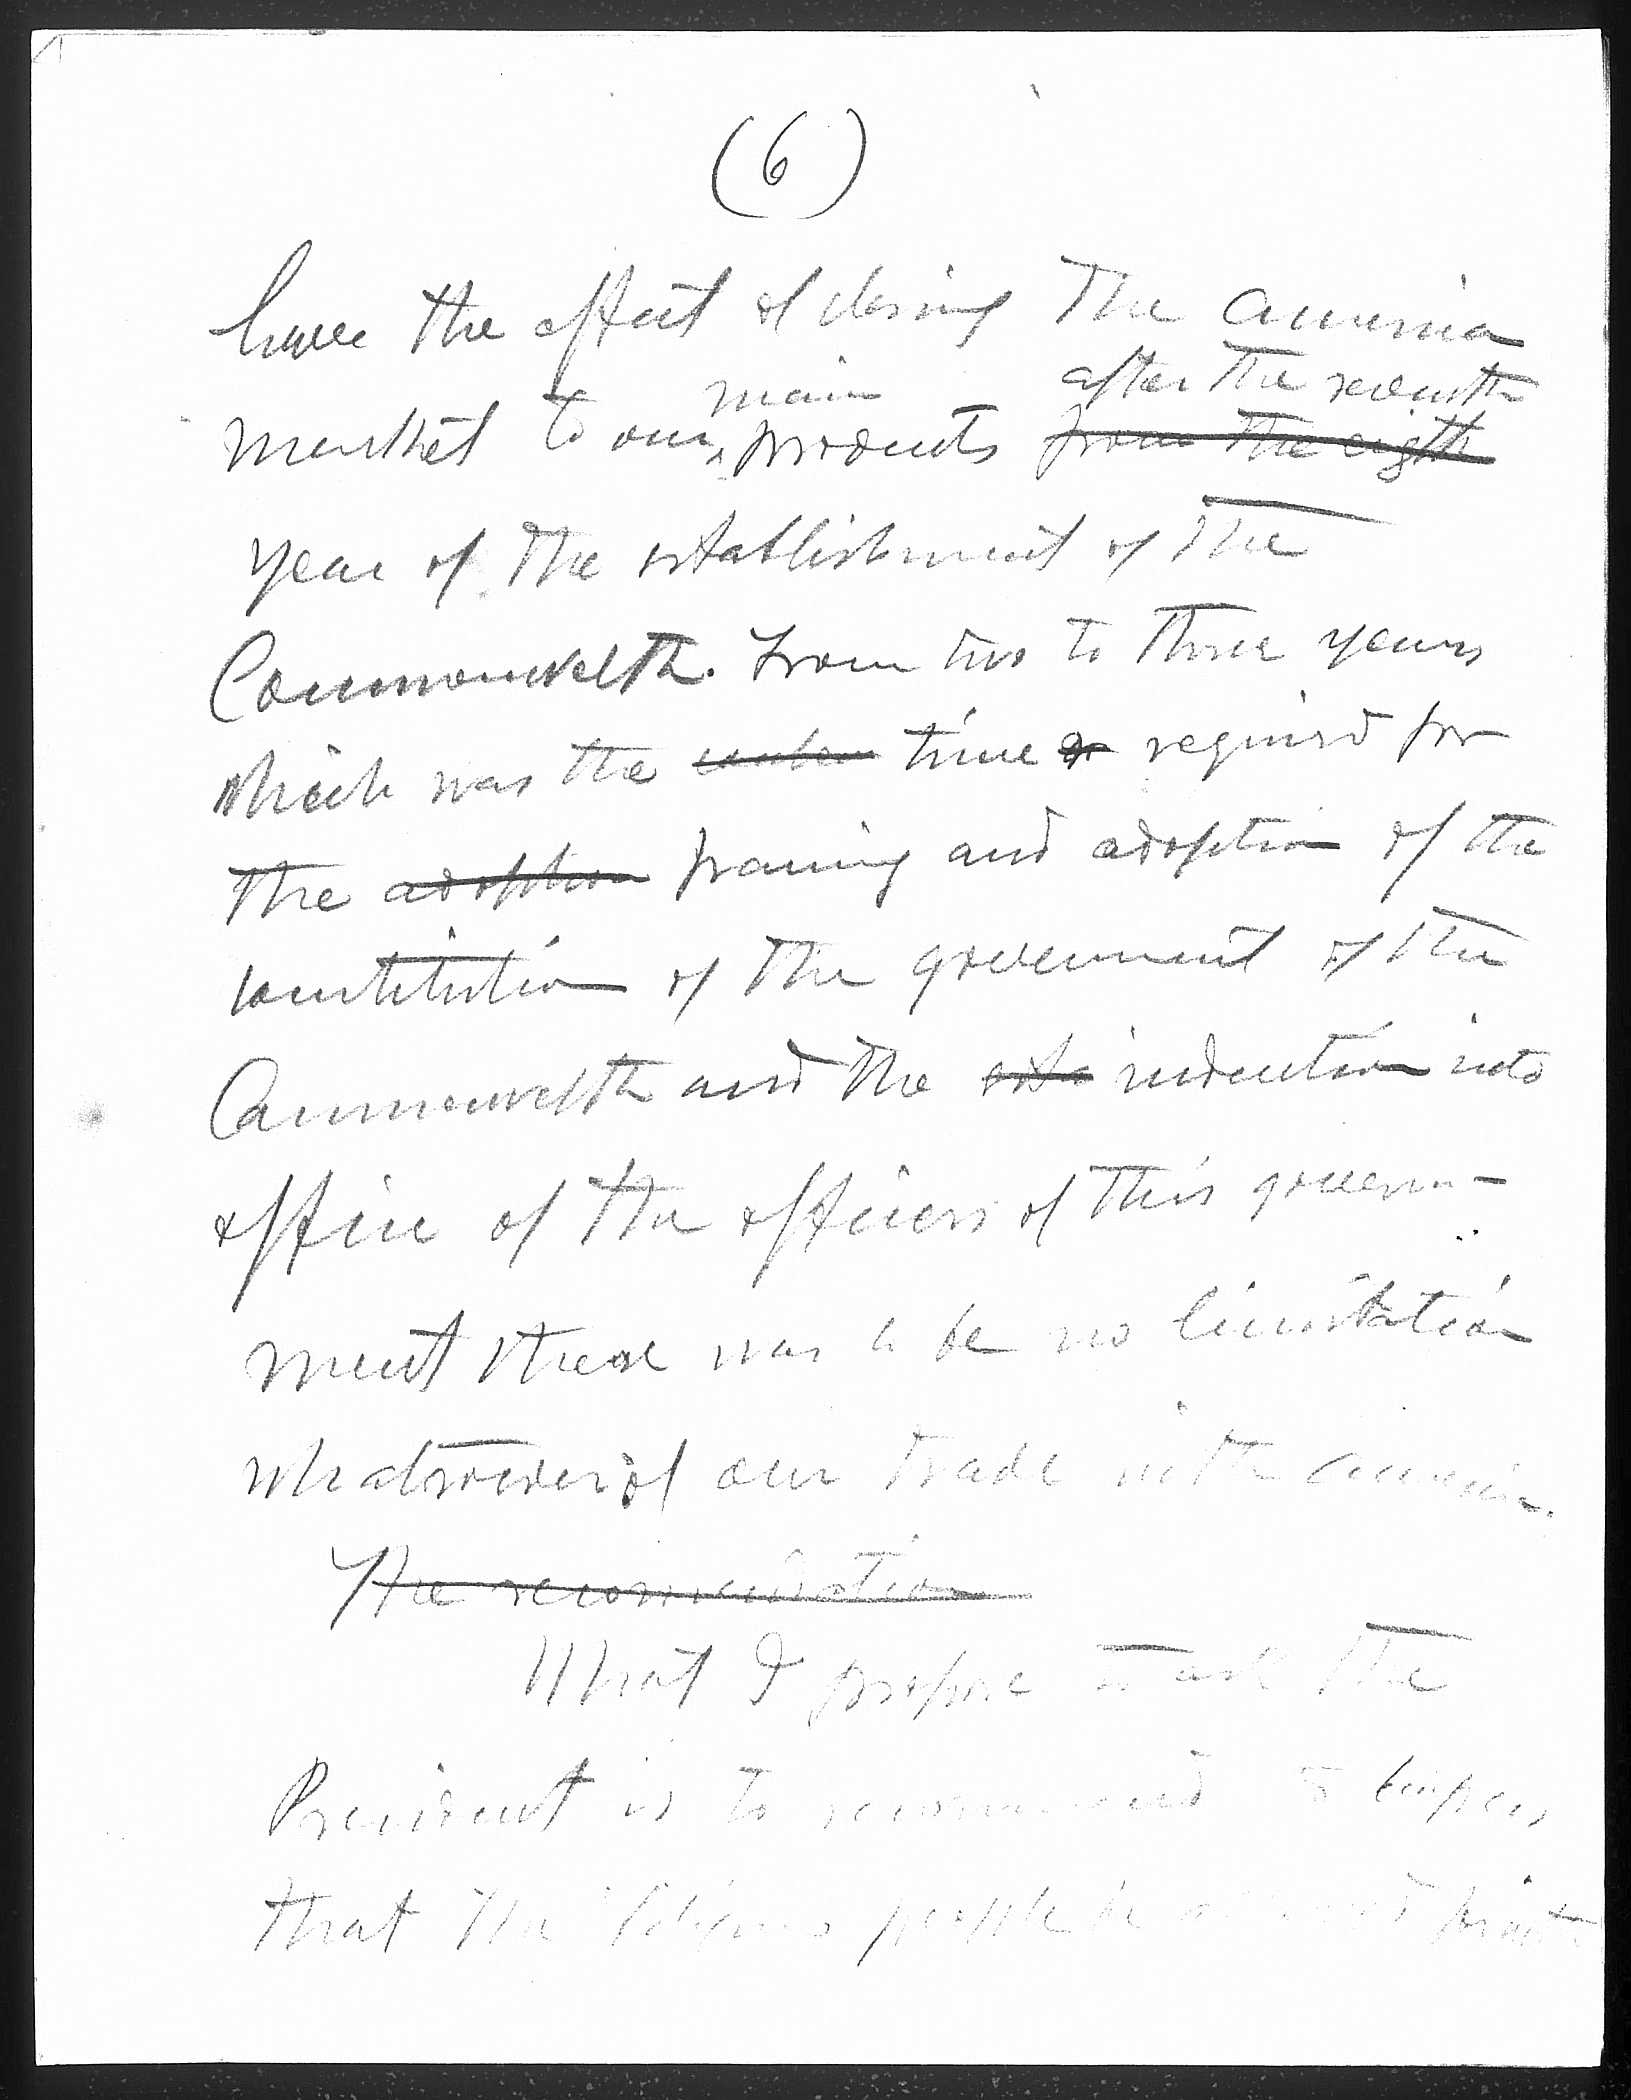 (6)
have the effect of closing the America
market to our main products ~~from the eigth~~ after the seventh
year of the establishment of the
Commonwelth. From two to three years
which was the time ~~or~~ required for
the ~~adoption~~ framing and adoption of the
constitution of the government of the
Commonwelth and the induction into
office of the officers of this govern-
ment there was to be no limitation
whatsoever of our trade with America.
~~The recommendation~~
What I propose to ask the
President is to recommend to
that the people be